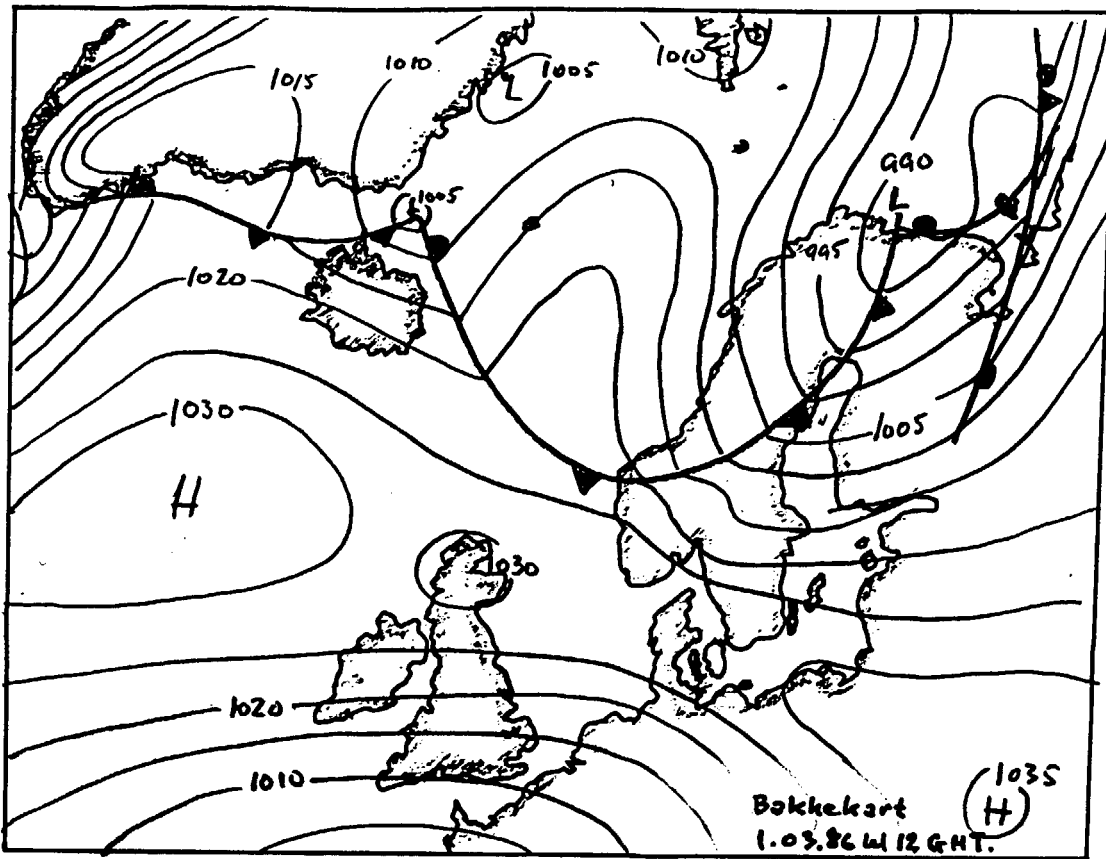 1015
1010
1005
L
1010
1005
990
L
995
1020
1030
H
1005
1030
1020
1010
1035
H
Bakkekart
1.03.86 kl 12 GMT.